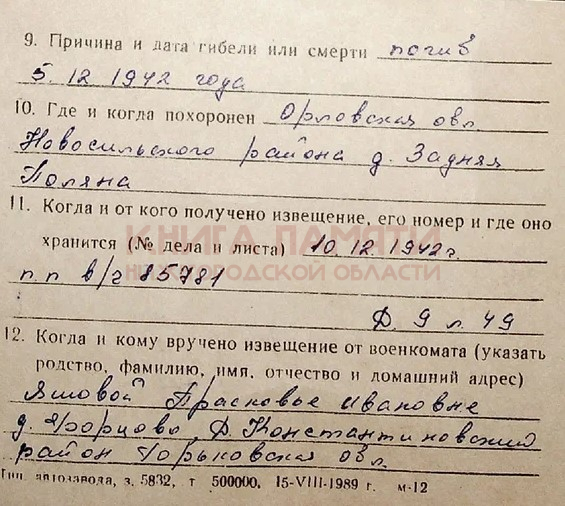 9. Причина и дата гибели или смерти погиб
5. 12 1942 года
10. Где и когда похоронен Орловская обл.
Новосильского района д. Задняя
Поляна
11. Когда и от кого получено извещение, его номер и где оно
хранится (№ дела и листа) 10.12.1942 г.
КНИГА ПАМЯТИ
НИЖЕГОРОДСКОЙ ОБЛАСТИ
п.п в/ч 85781
Д. 9 л. 49
12. Когда и кому вручено извещение от военкомата (указать
родство, фамилию, имя, отчество и домашний адрес)
Прасковье Ивановне
д. Д. Константиновский
район Горьковская обл.
Тип. автозавода, з. 5832, т 500000, 15-VIII-1989 г. м-12